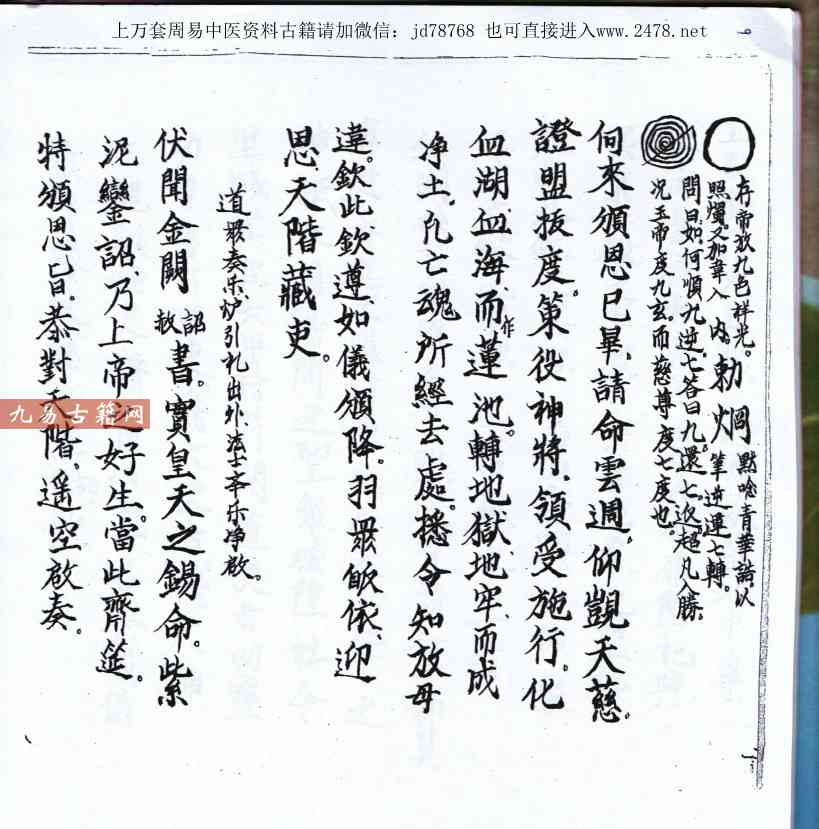 上万套周易中医资料古籍请加微信：jd78768 也可直接进入www.2478.net
存帝放九色祥光。
照燭又加韋入内。勅烱 默唸青華誥以
筆逆運七轉。
問曰如何順九逆七答曰九還七返超凡入勝。
况玉帝度九玄而慈尊度七度也。
伺來頒恩已畢請命雲週仰觀天慈。
證盟拔度。策役神將領受施行。化
血湖血海而作蓮池。轉地獄地牢而成
净土。凡亡魂所經去處。摠令知放毋
違。欽此欽遵如儀頒降。羽眾皈依迎
恩天階藏吏。
道眾奏乐炉引礼出外法士夲乐净啟。
伏聞金闕 詔赦 書。實皇天之錫命。紫
泥鑾詔乃上帝之好生。當此齋筵。
特頒恩旨。恭對天階。遥空啟奏。
九易古籍网